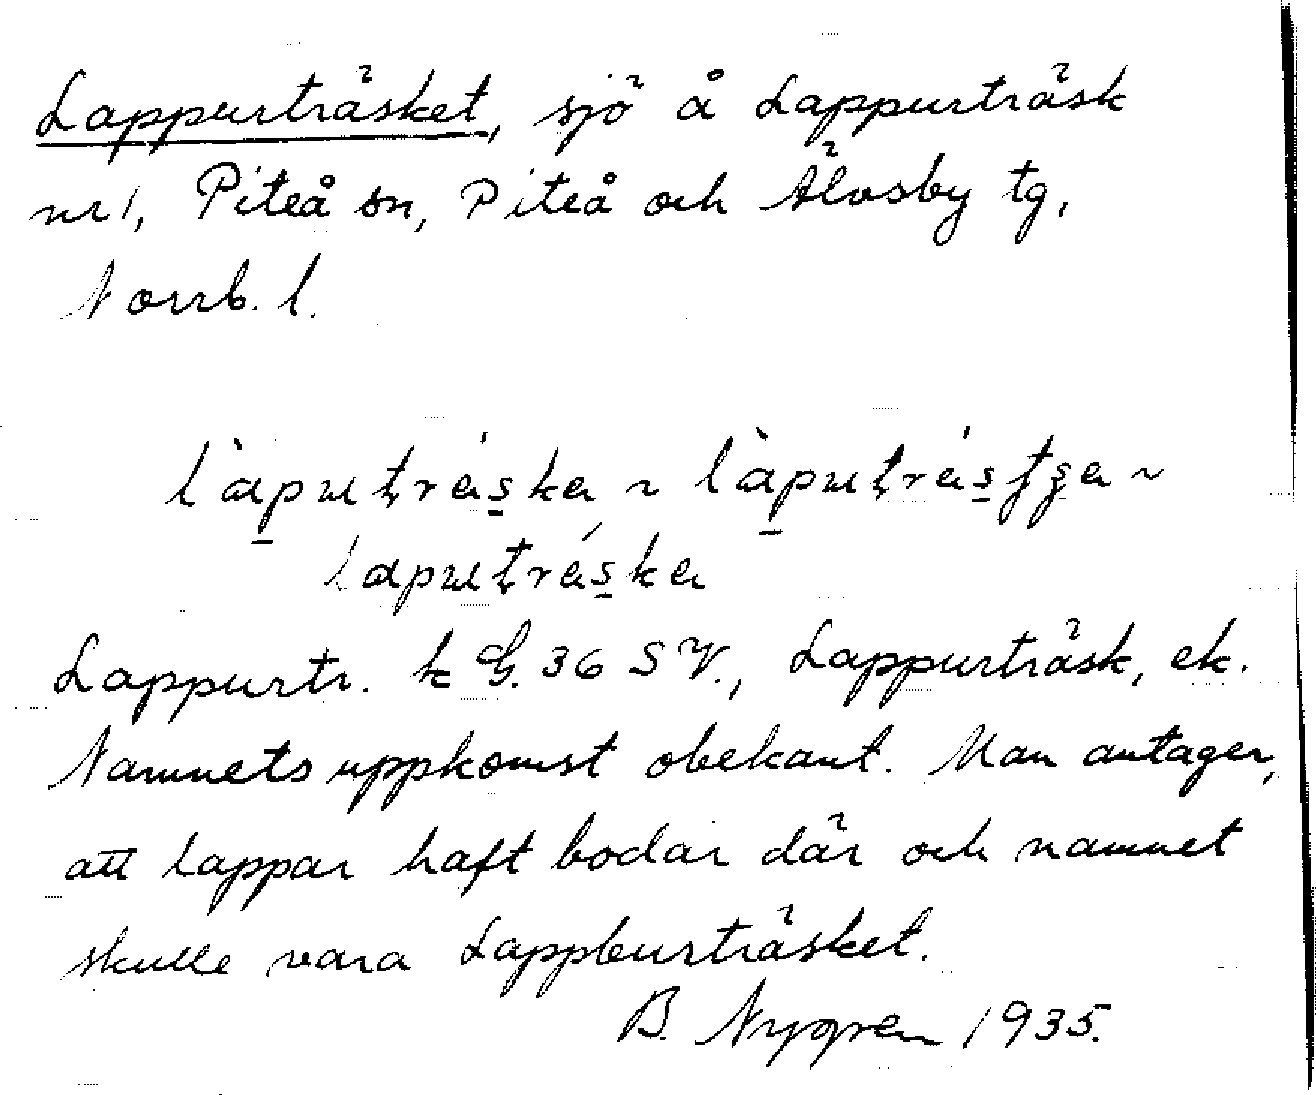 Lappurträsket, sjö å Lappurträsk
nr 1, Piteå sn, Piteå och Älvsby tg,
Norrb. l.
làpuṭráska ~ làpuṭrásʄʂa ~
lapuṭráska
Lappurtr. k G. 36 SV., Lappurträsk, ek.
Namnets uppkomst obekant. Man antager,
att lappar haft bodar där och namnet
skulle vara Lappburträsket.
B. Nygren 1935.